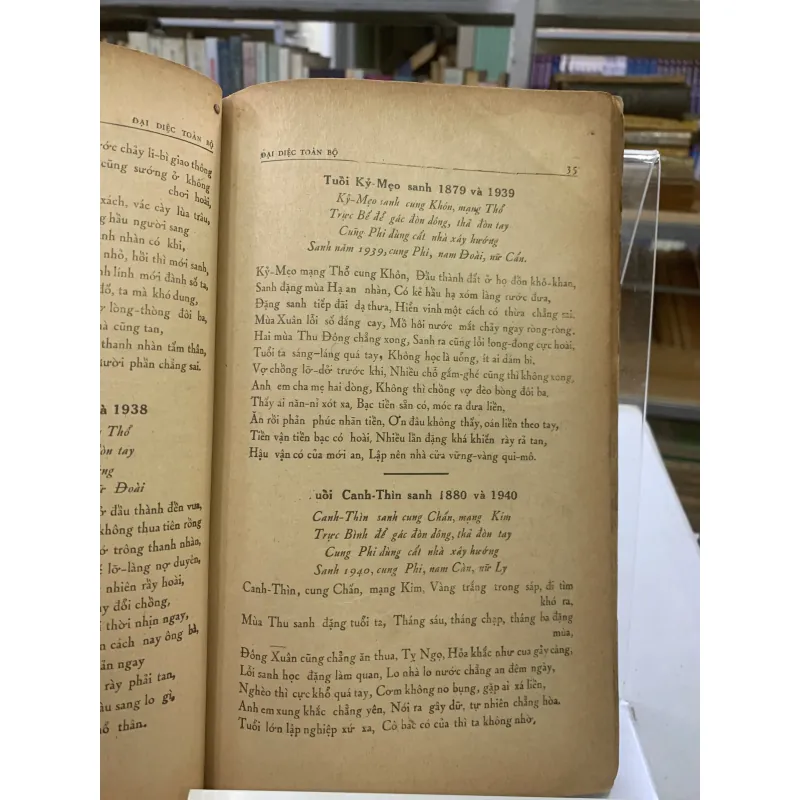 ĐẠI DIỆC TOÀN BỘ
ớc chảy li-bì giao thông
cũng sướng ở không
chơi hoài,
xách, vác cày lùa trâu,
hầu người sang
nh nhàn có khi,
nhỏ, hồi thì mới sanh,
h lính mới đành số ta,
đổ, ta mà khó dung,
lòng-thòng đôi ba,
hà cũng tan,
thanh nhàn tấm thân,
ười phần chẳng sai.
à 1938
Thổ
òn tay
ng
Đoài
ở đầu thành đền vua,
không thua tiên rồng
trông thanh nhàn,
lỡ-làng nợ duyên,
nhiên rầy hoài,
y đổi chồng,
thời nhịn ngay,
n cách nay ông bà,
ản ngay
rày phải tan,
àu sang lo gì,
ố thân.
ĐẠI DIỆC TOÀN BỘ 35
Tuổi Kỷ-Mẹo sanh 1879 và 1939
Kỷ-Mẹo sanh cung Khôn, mạng Thổ
Trực Bế để gác đòn dông, thả đòn tay
Cung Phi dùng cất nhà xây hướng
Sanh năm 1939, cung Phi, nam Đoài, nữ Cấn.
Kỷ-Mẹo mạng Thổ cung Khôn, Đầu thành đất ở họ đồn khô-khan,
Sanh đặng mùa Hạ an nhàn, Có kẻ hầu hạ xóm làng rước đưa,
Đặng sanh tiếp đãi dạ thưa, Hiển vinh một cách có thừa chẳng sai.
Mùa Xuân lỗi số đắng cay, Mồ hôi nước mắt chảy ngay ròng-ròng,
Hai mùa Thu Đông chẳng xong, Sanh ra cũng lỗi long-đong cực hoài,
Tuổi ta sáng-láng quá tay, Không học là uổng, ít ai dám bì.
Vợ chồng lỡ-dở trước khi, Nhiều chỗ gấm-ghé cũng thì không xong,
Anh em cha mẹ hai dòng, Không thì chồng vợ đèo bòng đôi ba,
Thấy ai năn-nỉ xót xa, Bạc tiền sẵn có, móc ra đưa liền,
Ăn rồi phản phúc nhãn tiền, Ơn đâu không thấy, oán liền theo tay,
Tiền vận tiền bạc có hoài, Nhiều lần đặng khá khiến rày rã tan,
Hậu vận có của mới an, Lập nên nhà cửa vững-vàng qui-mô.
uổi Canh-Thìn sanh 1880 và 1940
Canh-Thìn sanh cung Chấn, mạng Kim
Trực Bình để gác đòn dông, thả đòn tay
Cung Phi dùng cất nhà xây hướng
Sanh 1940, cung Phi, nam Càn, nữ Ly
Canh-Thìn, cung Chấn, mạng Kim, Vàng trắng trong sáp, đi tìm
khó ra,
Mùa Thu sanh đặng tuổi ta, Tháng sáu, tháng chạp, tháng ba đặng
mùa,
Đông Xuân cũng chẳng ăn thua, Tỵ Ngọ, Hỏa khắc như cua gãy càng,
Lỗi sanh học đặng làm quan, Lo nhà lo nước chẳng an đêm ngày,
Nghèo thì cực khổ quá tay, Cơm không no bụng, gặp ai xá liền,
Anh em xung khắc chẳng yên, Nói ra gây dữ, tự nhiên chẳng hòa.
Tuổi lớn lập nghiệp xứ xa, Cô bác có của thì ta không nhờ,